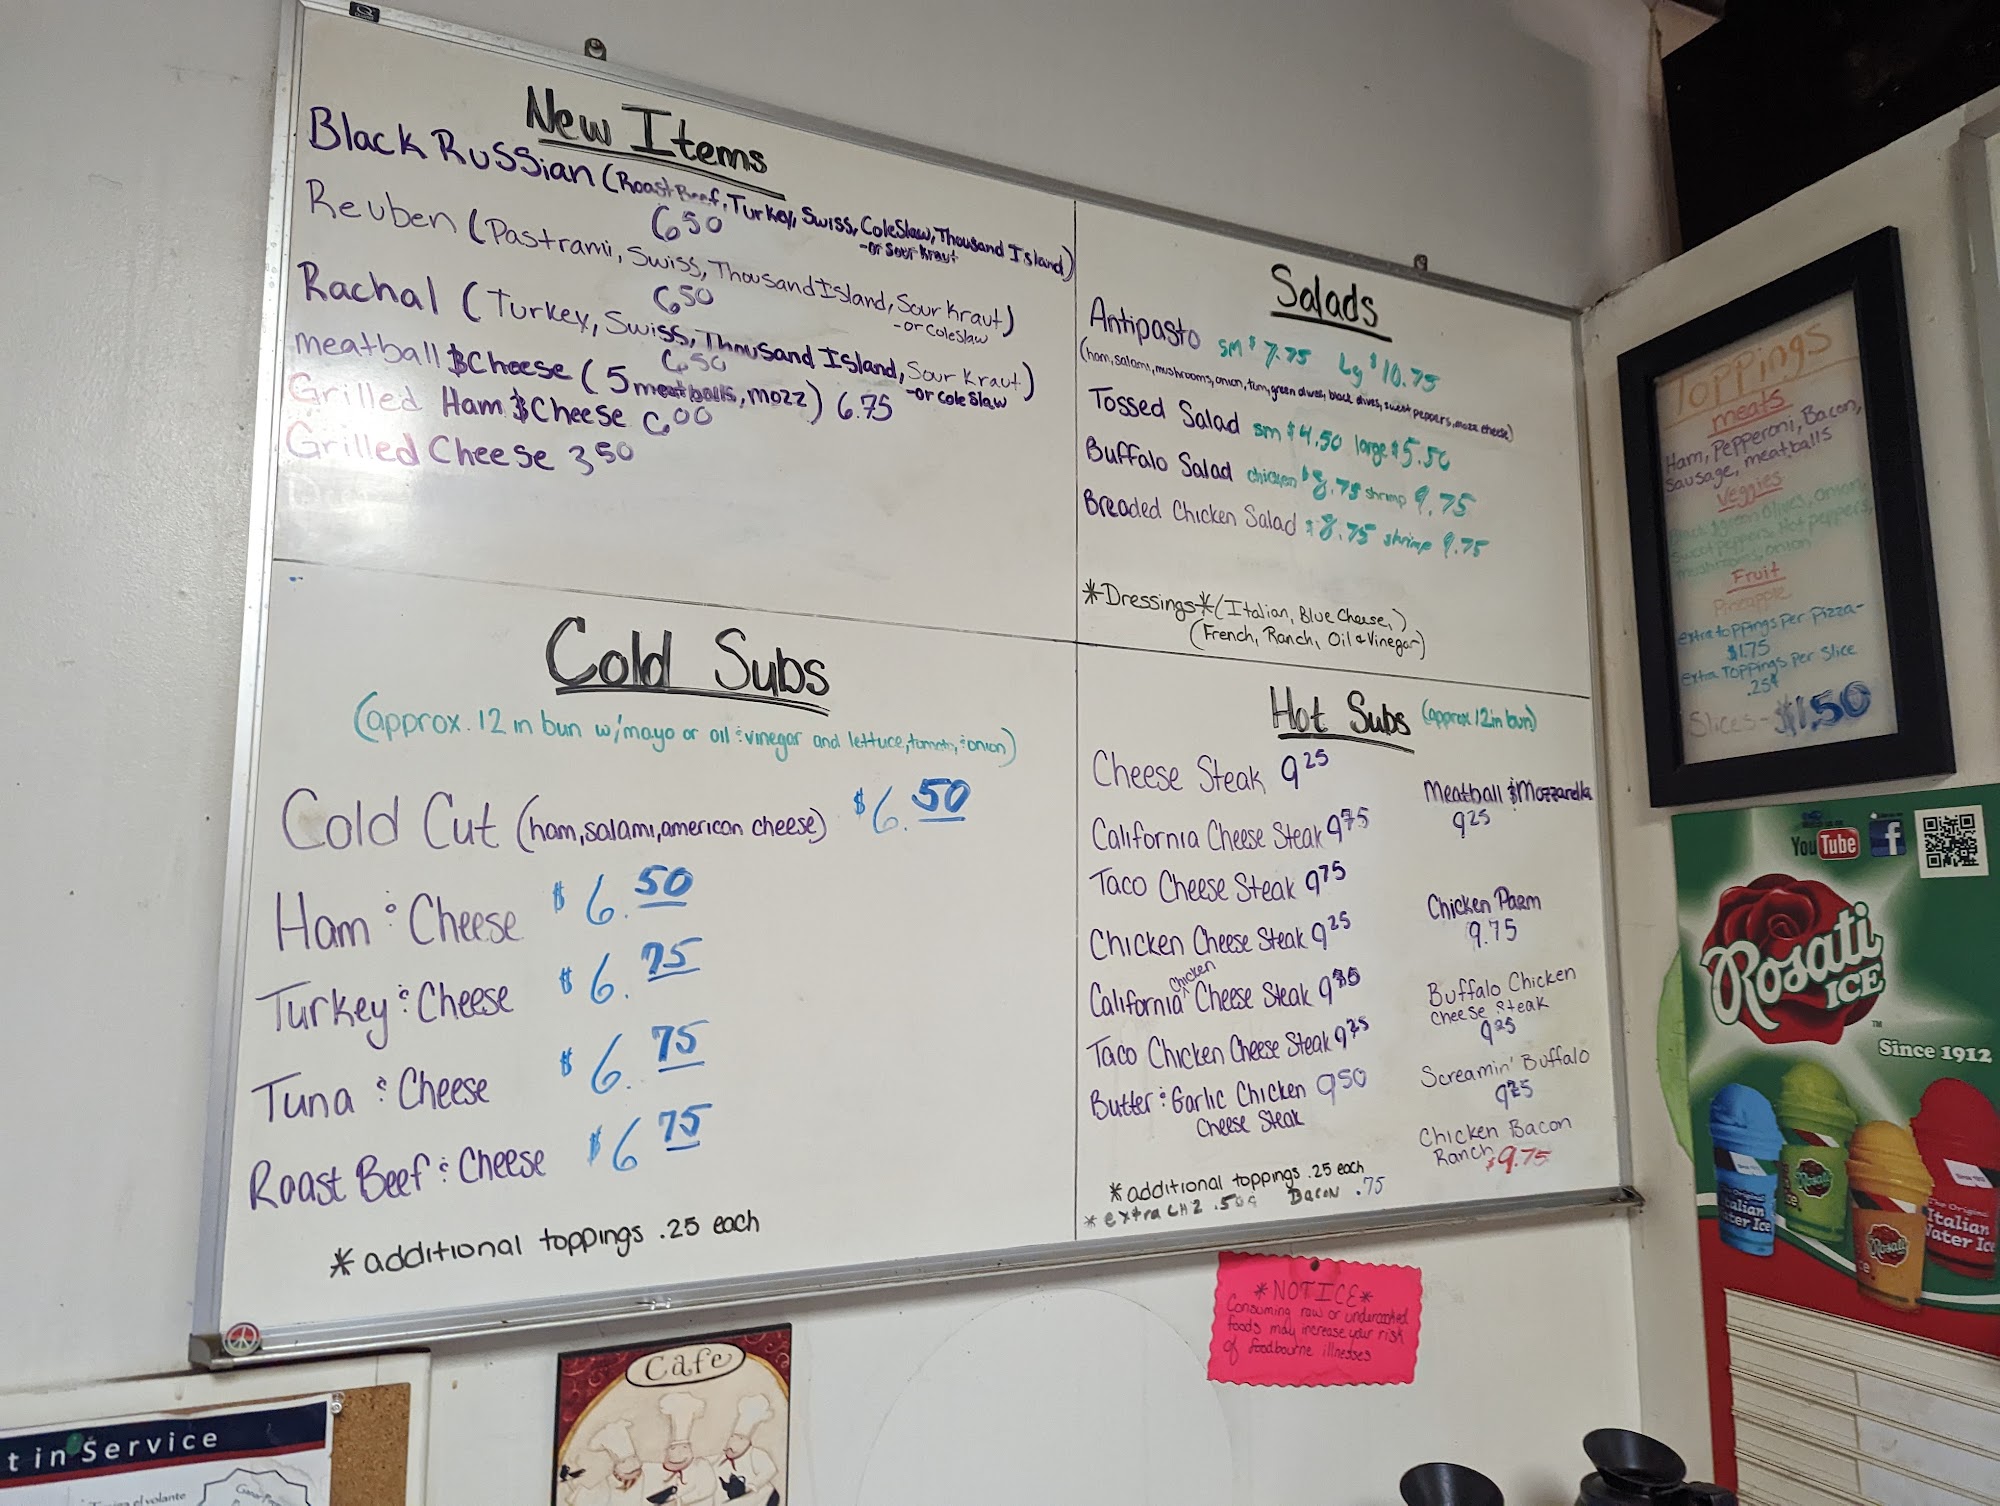 New Items
Black Russian (Roast Beef, Turkey, Swiss, ColeSlaw, Thousand Island)
-or Sour Kraut
650
Reuben (Pastrami, Swiss, Thousand Island, Sour Kraut)
-or ColeSlaw
650
Rachal (Turkey, Swiss, Thousand Island, Sour Kraut)
-or Cole Slaw
650
meatball & Cheese (5 meatballs, mozz) 6.75
Grilled Ham & Cheese 600
Grilled Cheese 350
Salads
Antipasto sm $7.75 Lg $10.75
(ham, salami, mushrooms, onion, tom, green olives, black olives, sweet peppers, mozz cheese)
Tossed Salad sm $4.50 large $5.50
Buffalo Salad chicken $8.75 shrimp 9.75
Breaded Chicken Salad $8.75 shrimp 9.75
*Dressings* (Italian, Blue Cheese,)
(French, Ranch, Oil & Vinegar)
Cold Subs
(approx. 12 in bun w/mayo or oil & vinegar and lettuce, tomato, & onion)
Cold Cut (ham, salami, american cheese) $6.50
Ham & Cheese $6.50
Turkey & Cheese $6.75
Tuna & Cheese $6.75
Roast Beef & Cheese $6 75
*additional toppings .25 each
Hot Subs (approx 12 in bun)
Cheese Steak 925
California Cheese Steak 975
Taco Cheese Steak 975
Chicken Cheese Steak 925
California Chicken Cheese Steak
Taco Chicken Cheese Steak 975
Butter & Garlic Chicken 950
Cheese Steak
*additional toppings .25 each
*extra CHZ .50¢ Bacon .75
Meatball & Mozzarella
925
Chicken Parm
9.75
Buffalo Chicken
Cheese Steak
925
Screamin' Buffalo
Chicken Bacon
Ranch $9.75
Toppings
meats
Ham, Pepperoni, Bacon,
Sausage, meatballs
Veggies
Black & green Olives, onion,
Sweet peppers, Hot peppers,
mushrooms, onion
Fruit
Pineapple
extra toppings per pizza-
$1.75
extra Toppings per Slice
.25¢
Slices - $1.50
You Tube
f
Rosati
ICE
TM
Since 1912
The Original
Italian
Water Ice
The Original
Italian
Water Ice
Rosati
*NOTICE*
Consuming raw or undercooked
foods may increase your risk
of foodbourne illnesses
Cafe
t in Service
el volante